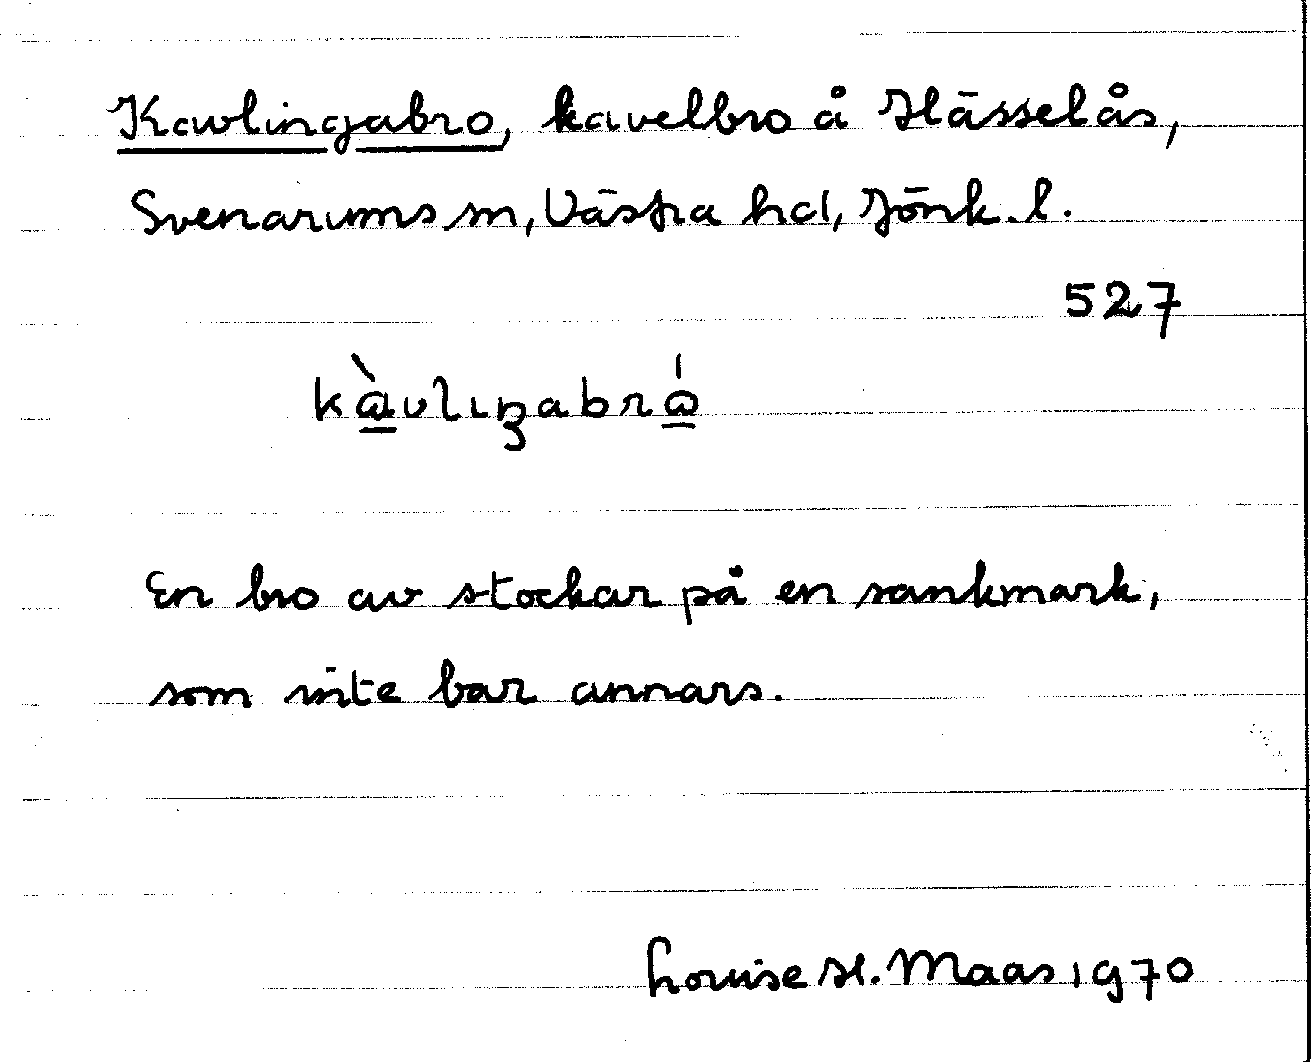 Kavlingabro, kavelbro å Hässelås,
Svenarums sn, Västra hd, Jönk. l.
527
En bro av stockar på en sankmark,
som inte bar annars.
Louise H. Maas 1970